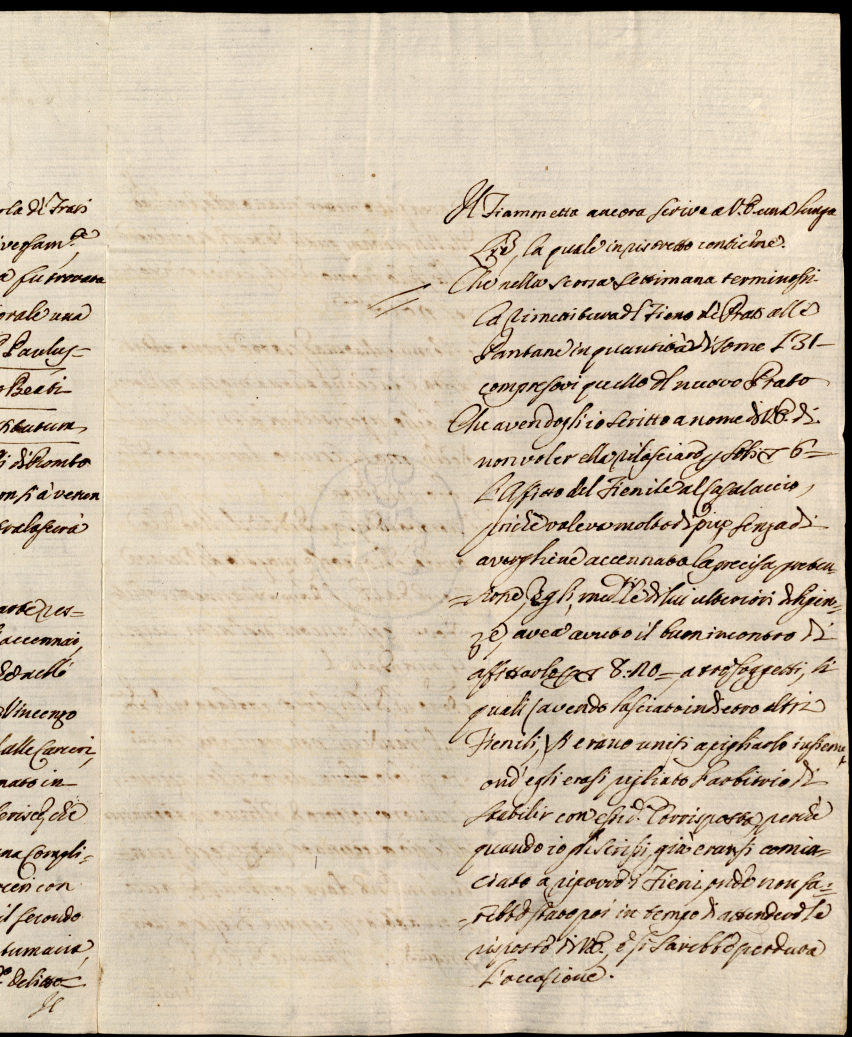 rola di Trasi
iversam.te
a fu trovata
orale una
Paulus=
Beati
stibutum
di Piombo
accennai,
Vincenzo
dalle Carceri,
mato in
una Compli=
il secondo
tumacia
delitto
Il
Il Fiammetta ancora scrive a V.E. una lunga
Lrã, la quale in ristretto contiene.
Che nella scorsa settimana terminossi
la rimettitura del Fieno de Prati alle
Pantane in quantità di some 131–
compresovi quello del nuovo Prato
Che avendogli io scritto a nome di V.E. di
non voler ella rilasciare p soli 6=
L'Affitto del Fienile al Casalaccio,
valeva molto di più, senza di
averghene accennato la precisa preten=
=sione, Egli, med.te le di lui ulteriori diligen=
ze, avea avuto il buon incontro di
affittarlo 8:20= a tre soggetti, li
quali (avendo lasciato indietro altri
Fienili,) si erano uniti a pigliarlo insieme
ond'egli erasi pigliato l'arbitrio di
stabilir con essi d.a Corrisposta, perche
quando io gli scrissi, già eransi comin=
ciato a riporvi i Fieni, onde non sa=
=rebbe stato poi in tempo di attendere le
risposte di V.E., e si sarebbe perduta
l'occasione.